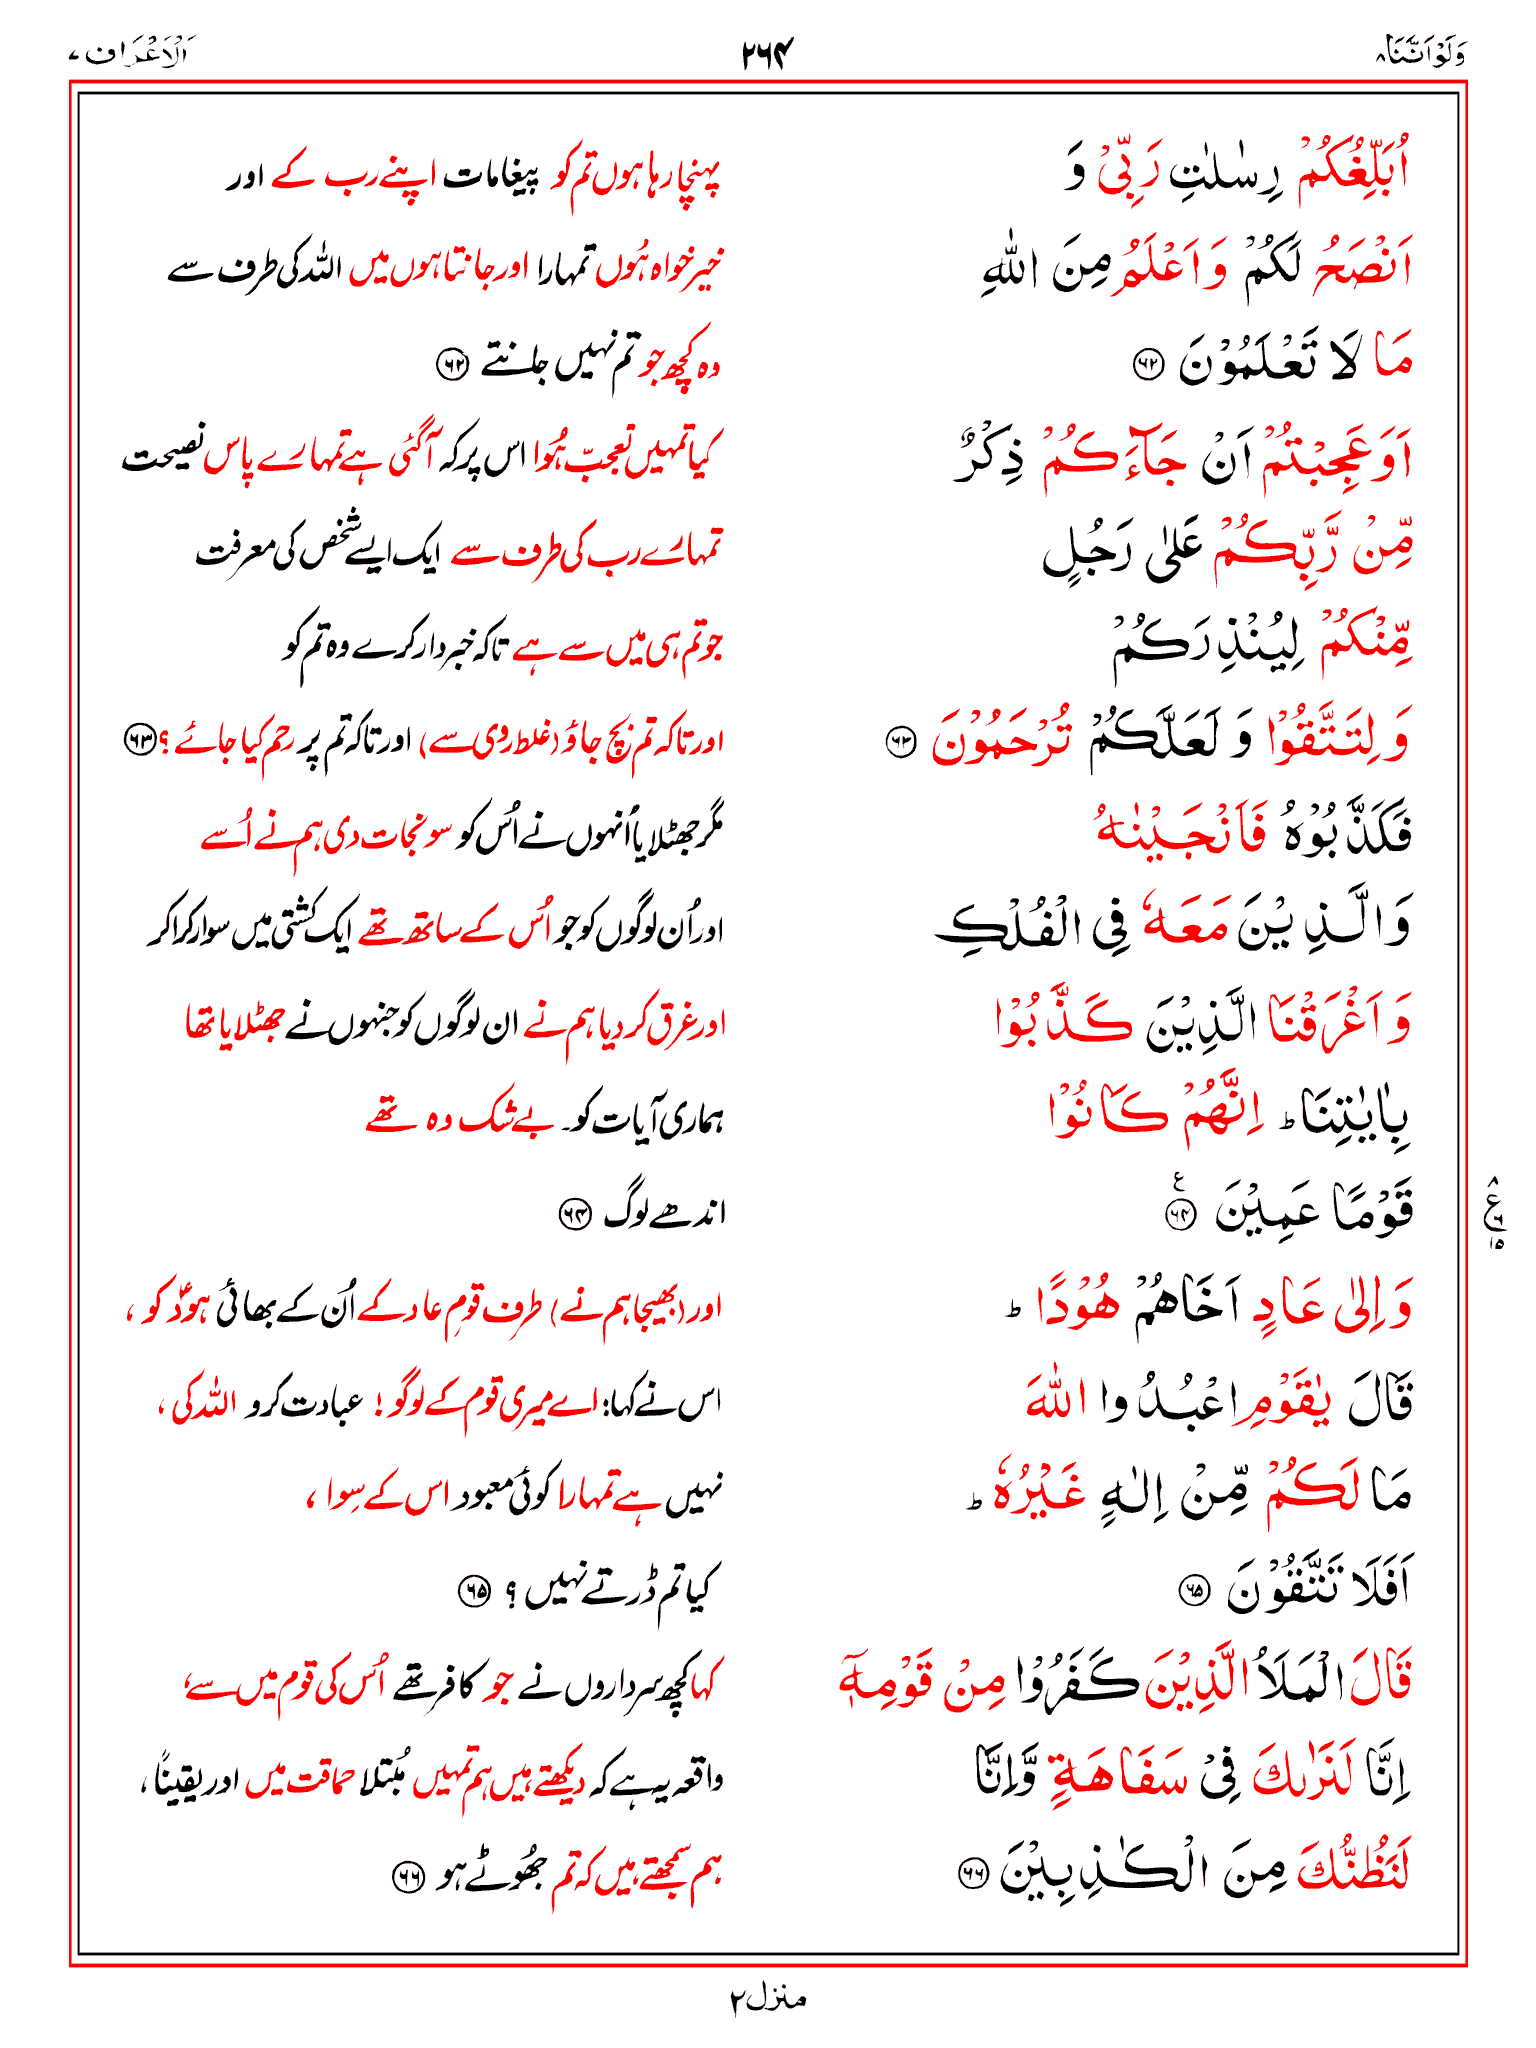 وَلَوْاَنَّنَا ۸ ۲۶۴ اَلْاَعْرَاف ۷
اُبَلِّغُكُمْ رِسٰلٰتِ رَبِّيْ وَ پہنچا رہا ہوں تم کو پیغامات اپنے رب کے اور
اَنْصَحُ لَكُمْ وَاَعْلَمُ مِنَ اللّٰهِ خیر خواہ ہُوں تمہارا اور جانتا ہوں میں اللہ کی طرف سے
مَا لَا تَعْلَمُوْنَ ۶۲ وہ کچھ جو تم نہیں جانتے ۶۲
اَوَعَجِبْتُمْ اَنْ جَآءَكُمْ ذِكْرٌ کیا تمہیں تعجّب ہُوا اس پر کہ آ گئی ہے تمہارے پاس نصیحت
مِّنْ رَّبِّكُمْ عَلٰى رَجُلٍ تمہارے رب کی طرف سے ایک ایسے شخص کی معرفت
مِّنْكُمْ لِيُنْذِرَكُمْ جو تم ہی میں سے ہے تاکہ خبردار کرے وہ تم کو
وَلِتَتَّقُوْا وَ لَعَلَّكُمْ تُرْحَمُوْنَ ۶۳ اور تاکہ تم بچ جاؤ (غلط روی سے) اور تاکہ تم پر رحم کیا جائے؟ ۶۳
فَكَذَّبُوْهُ فَاَنْجَيْنٰهُ مگر جھٹلایا اُنہوں نے اُس کو سو نجات دی ہم نے اُسے
وَالَّذِيْنَ مَعَهٗ فِي الْفُلْكِ اور اُن لوگوں کو جو اُس کے ساتھ تھے ایک کشتی میں سوار کرا کر
وَاَغْرَقْنَا الَّذِيْنَ كَذَّبُوْا اور غرق کر دیا ہم نے ان لوگوں کو جنہوں نے جھٹلایا تھا
بِاٰيٰتِنَا ؕ اِنَّهُمْ كَانُوْا ہماری آیات کو۔ بے شک وہ تھے
قَوْمًا عَمِيْنَ ۶۴ ع اندھے لوگ ۶۴
۸ ع ۶ ۱۵
وَاِلٰى عَادٍ اَخَاهُمْ هُوْدًا ؕ اور (بھیجا ہم نے) طرف قومِ عاد کے اُن کے بھائی ہودؑ کو،
قَالَ يٰقَوْمِ اعْبُدُوا اللّٰهَ اس نے کہا: اے میری قوم کے لوگو! عبادت کرو اللہ کی،
مَا لَكُمْ مِّنْ اِلٰهٍ غَيْرُهٗ ؕ نہیں ہے تمہارا کوئی معبود اس کے سِوا،
اَفَلَا تَتَّقُوْنَ ۶۵ کیا تم ڈرتے نہیں؟ ۶۵
قَالَ الْمَلَاُ الَّذِيْنَ كَفَرُوْا مِنْ قَوْمِهٖٓ کہا کچھ سرداروں نے جو کافر تھے اُس کی قوم میں سے،
اِنَّا لَنَرٰىكَ فِيْ سَفَاهَةٍ وَّاِنَّا واقعہ یہ ہے کہ دیکھتے ہیں ہم تمہیں مُبتلا حماقت میں اور یقیناً،
لَنَظُنُّكَ مِنَ الْكٰذِبِيْنَ ۶۶ ہم سمجھتے ہیں کہ تم جھُوٹے ہو ۶۶
منزل ۲